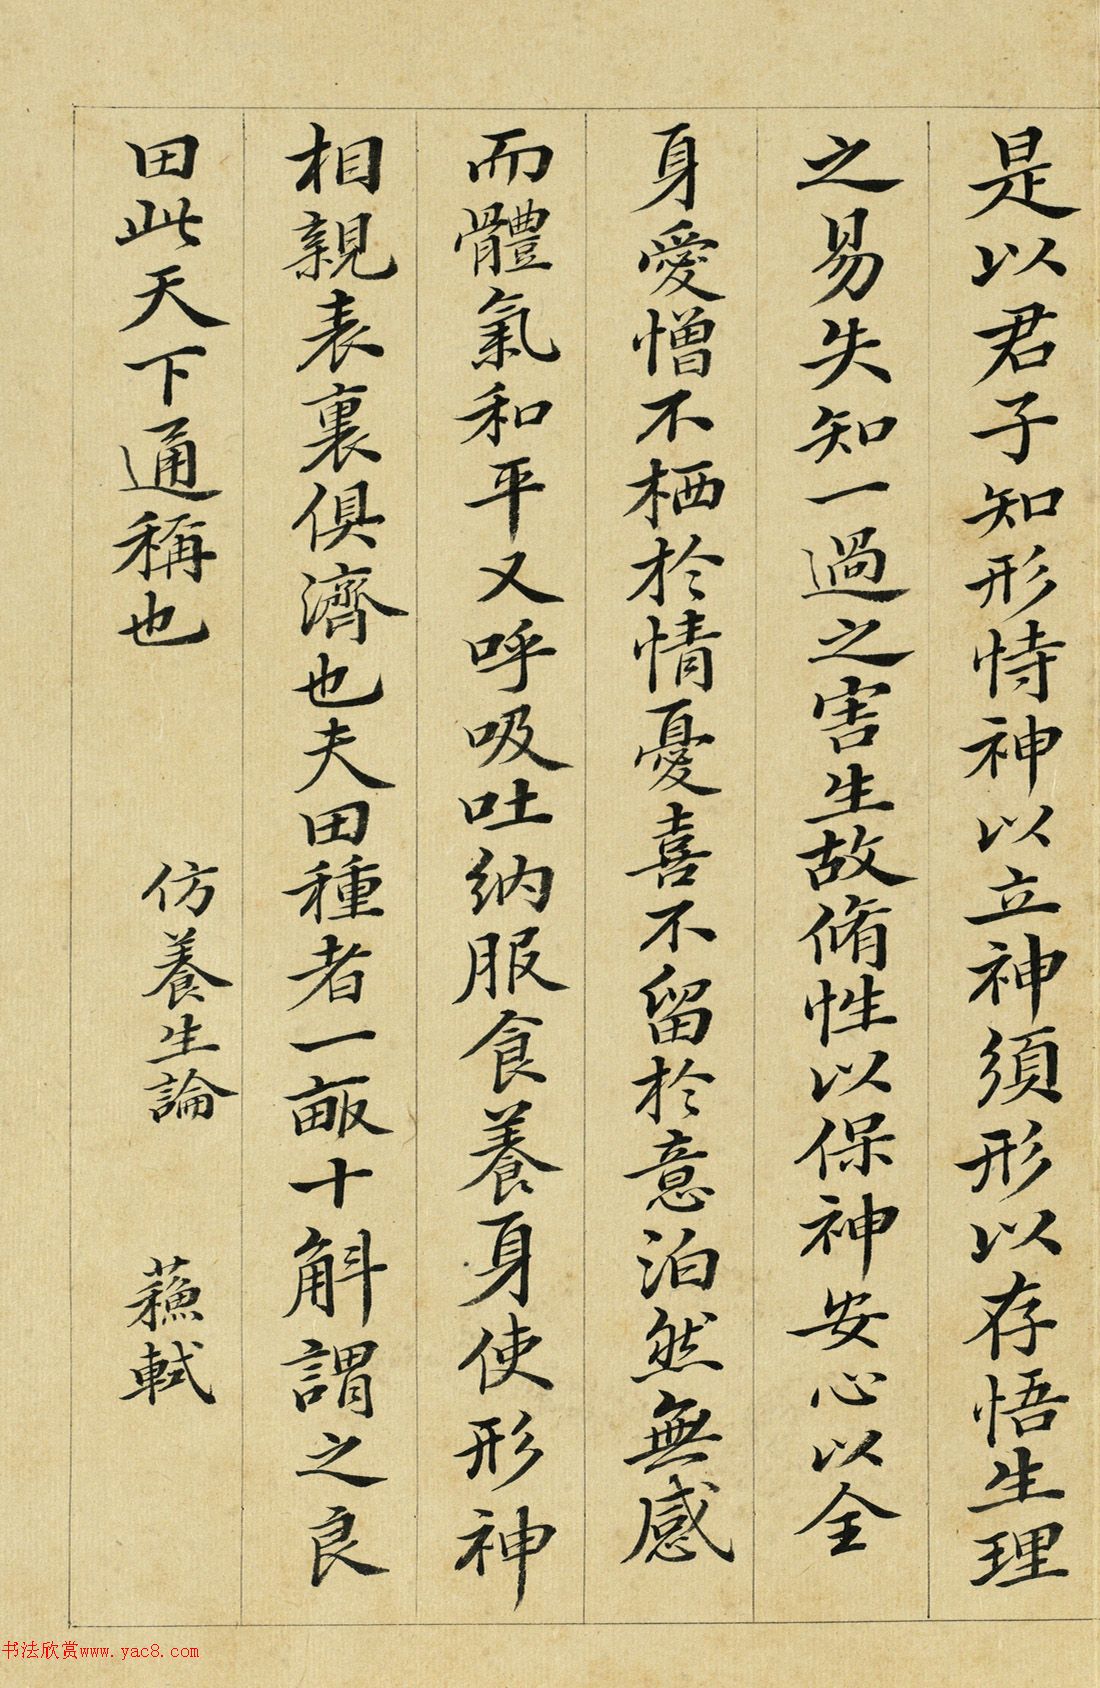 是以君子知形恃神以立神須形以存悟生理
之易失知一過之害生故脩性以保神安心以全
身愛憎不栖於情憂喜不留於意泊然無感
而體氣和平又呼吸吐納服食養身使形神
相親表裏俱濟也夫田種者一畝十斛謂之良
田此天下通稱也
仿養生論
蘓軾
书法欣赏www.yac8.com